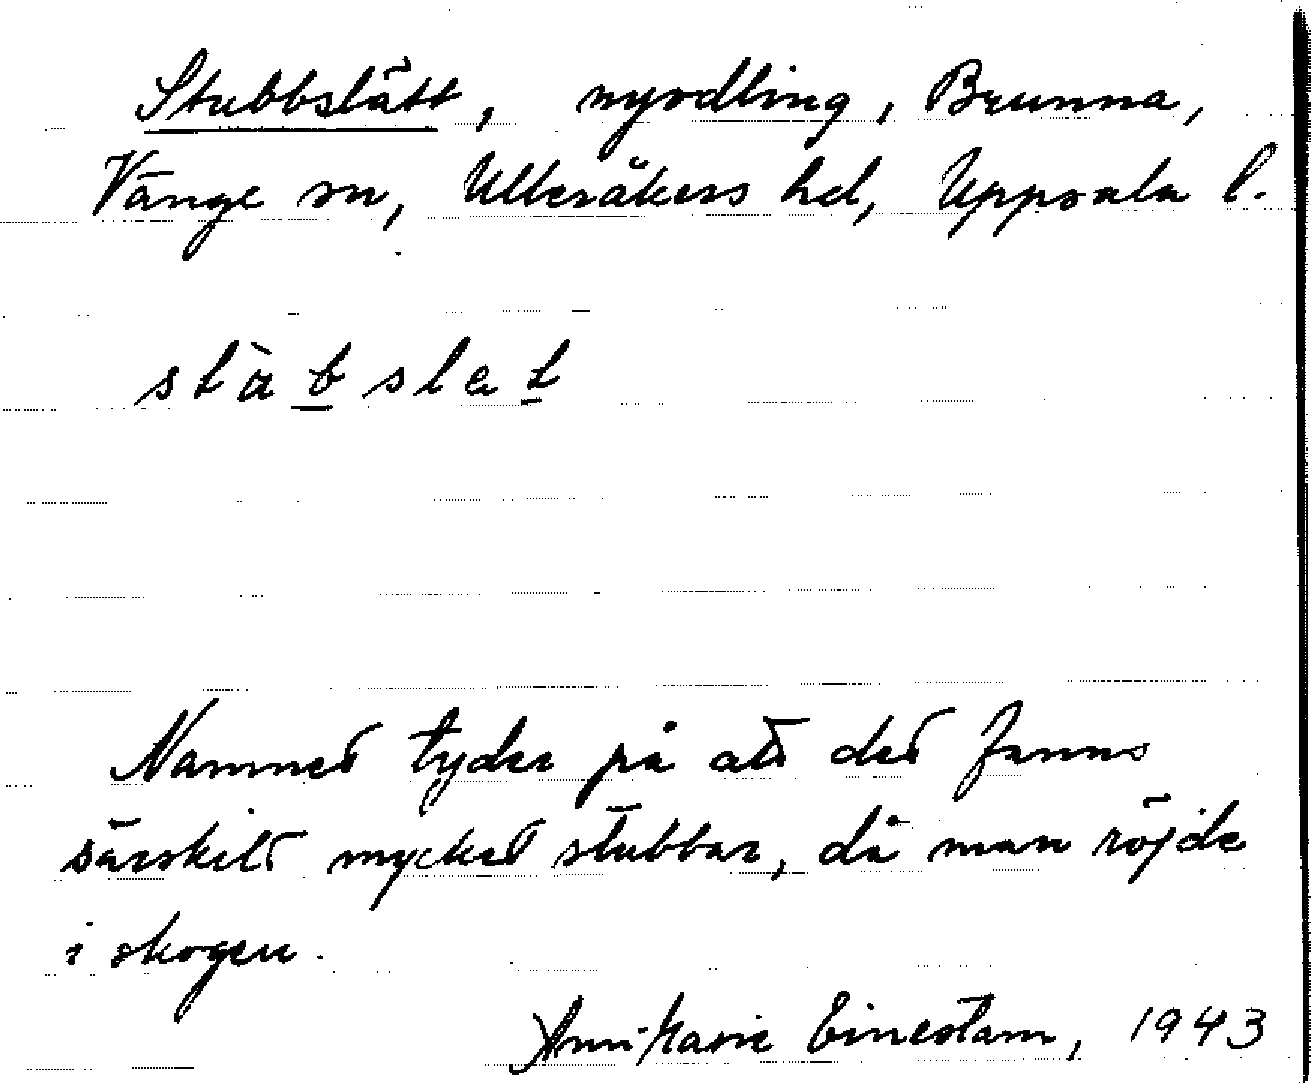 Stubbslätt, nyodling, Brunna,
Vänge sn, Ulleråkers hd, Uppsala l.
stàbslet
Namnet tyder på att det fanns
särskilt mycket stubbar, då man röjde
i skogen.
Ann-Marie Einestam, 1943